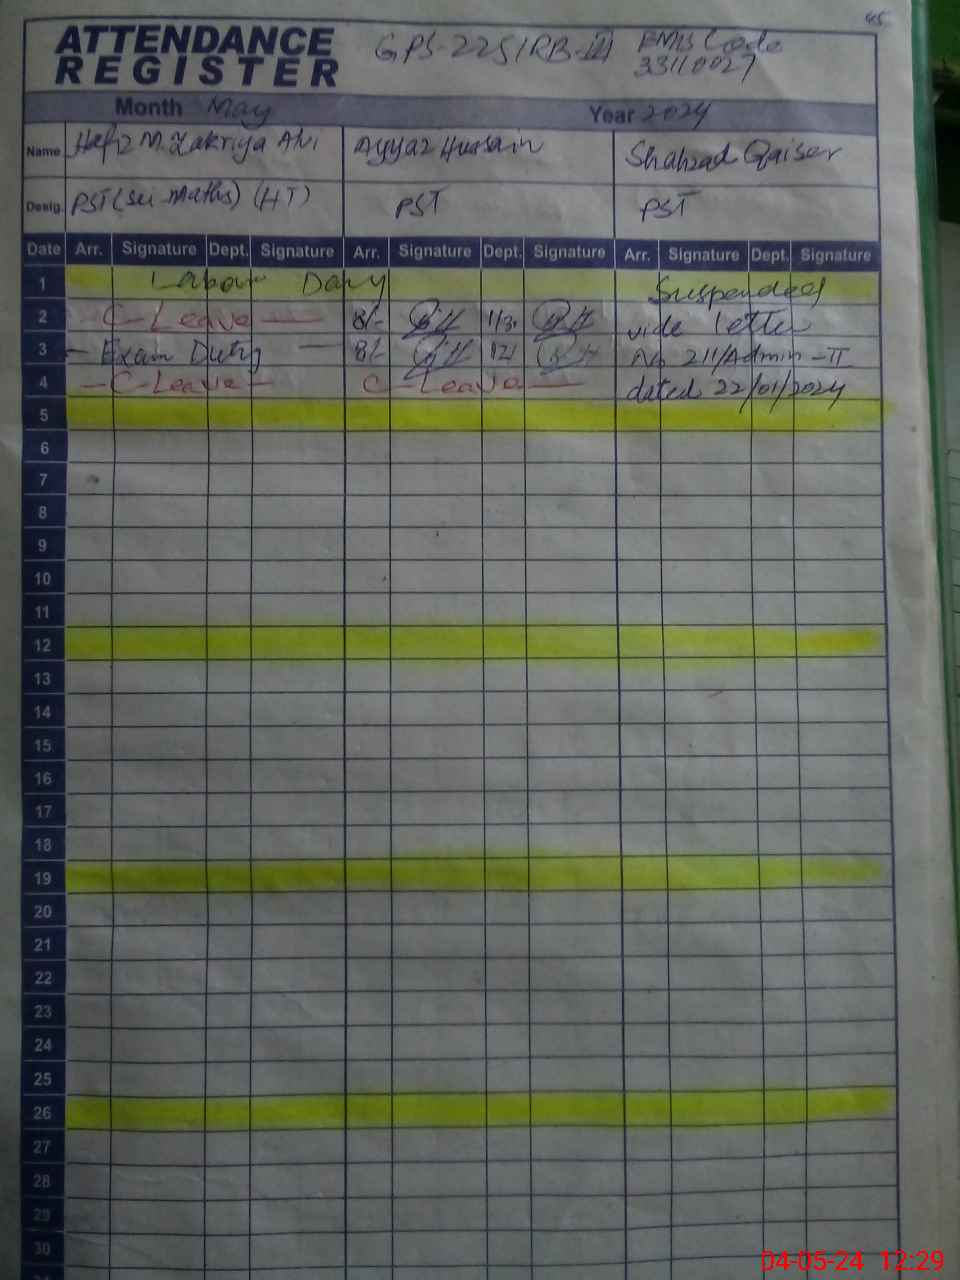 45
ATTENDANCE REGISTER
GPS-225/RB-III EMIS Code
33110027
Month May Year 2024
Name Hafiz M. Zakriya Alvi Ayyaz Hussain Shahzad Qaiser
Desig. PST (Sci. Maths) (HT) PST PST
Date Arr. Signature Dept. Signature Arr. Signature Dept. Signature Arr. Signature Dept. Signature
1 Labour Day Suspended
2 C-Leave 8/- 1/3. vide letter
3 Exam Duty 8/- 12/ No 211/Admin-II
4 C-Leave C-Leave dated 22/01/2024
5
6
7
8
9
10
11
12
13
14
15
16
17
18
19
20
21
22
23
24
25
26
27
28
29
30
04-05-24 12:29